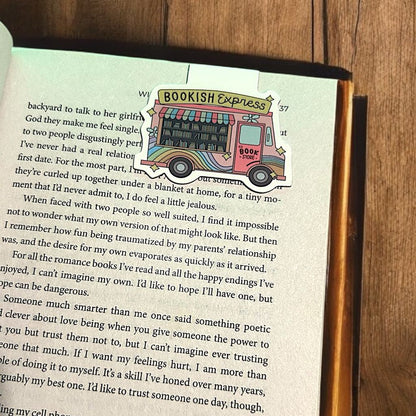 WI
37
BOOKISH Express
THE
BOOK
STORE
backyard to talk to her girlfr
God they make me feel single.
to two people disgustingly perf
I've never had a real relation
first date. For the most part, I'm
out something
they're curled up together under a blanket at home, for a tiny mo-
ment that I'd never admit to, I do feel a little jealous.
When faced with two people so well suited, I find it impossible
not to wonder what my own version of that might look like. But then
I remember how fun being traumatized by my parents' relationship
was, and the desire for my own evaporates as quickly as it arrived.
For all the romance books I've read and all the happy endings I've
enjoyed, I can't imagine my own. I'd like to hope I'll have one, but
ope can be dangerous.
Someone much smarter than me once said something poetic
d clever about love being when you give someone the power to
t you but trust them not to, but I can't imagine ever trusting
eone that much. If I want my feelings hurt, I am more than
ble of doing it to myself. It's a skill I've honed over many years,
rguably my best one. I'd like to trust someone one day, though,
ing my cell phone